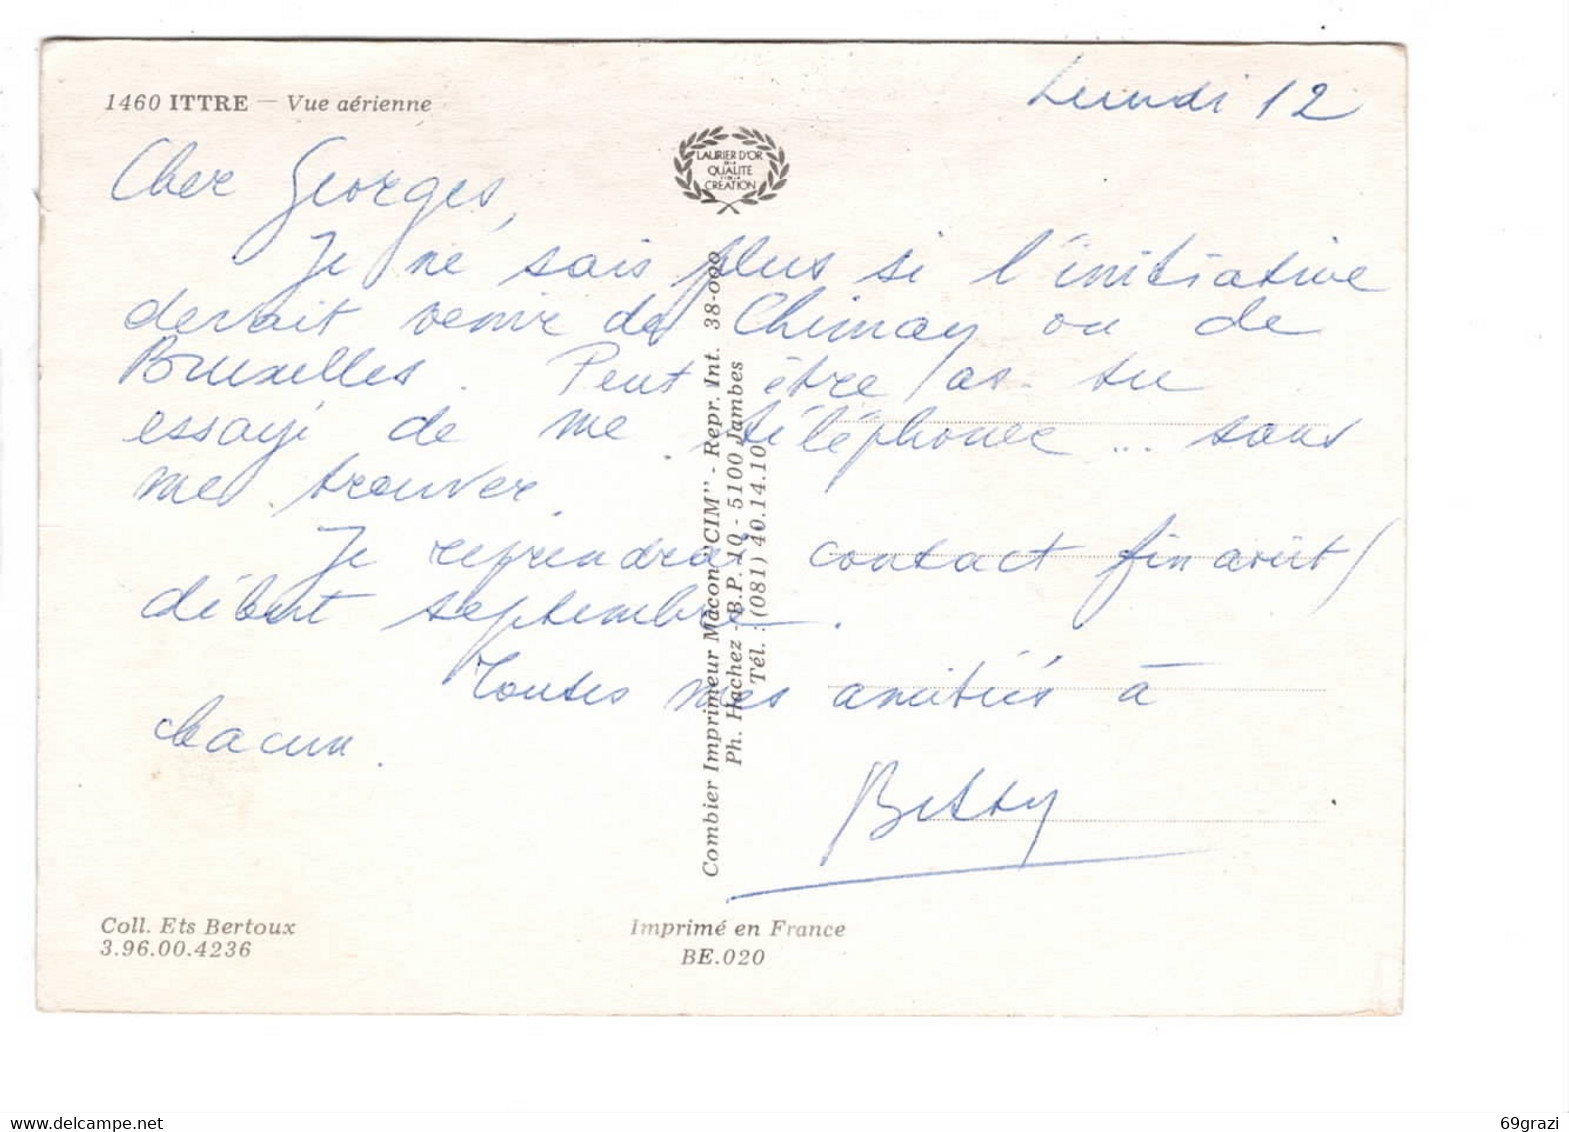 1460 ITTRE — Vue aérienne
Lundi 12
LAURIER D'OR
DE LA
QUALITÉ
ET DE LA
CRÉATION
Cher Georges,
Je ne sais plus si l'initiative
devait venir de Chimay ou de
Bruxelles. Peut être as-tu
essayé de me téléphoner... sans
me trouver.
Je reprendrai contact fin août/
début septembre.
Toutes mes amitiés à
chacun.
Betty
Combier Imprimeur Mâcon "CIM" - Repr. Int. 38-000
Ph. Hachez - B.P. 10 - 5100 Jambes
Tél. : (081) 40.14.10
Coll. Ets Bertoux
3.96.00.4236
Imprimé en France
BE.020
69grazi